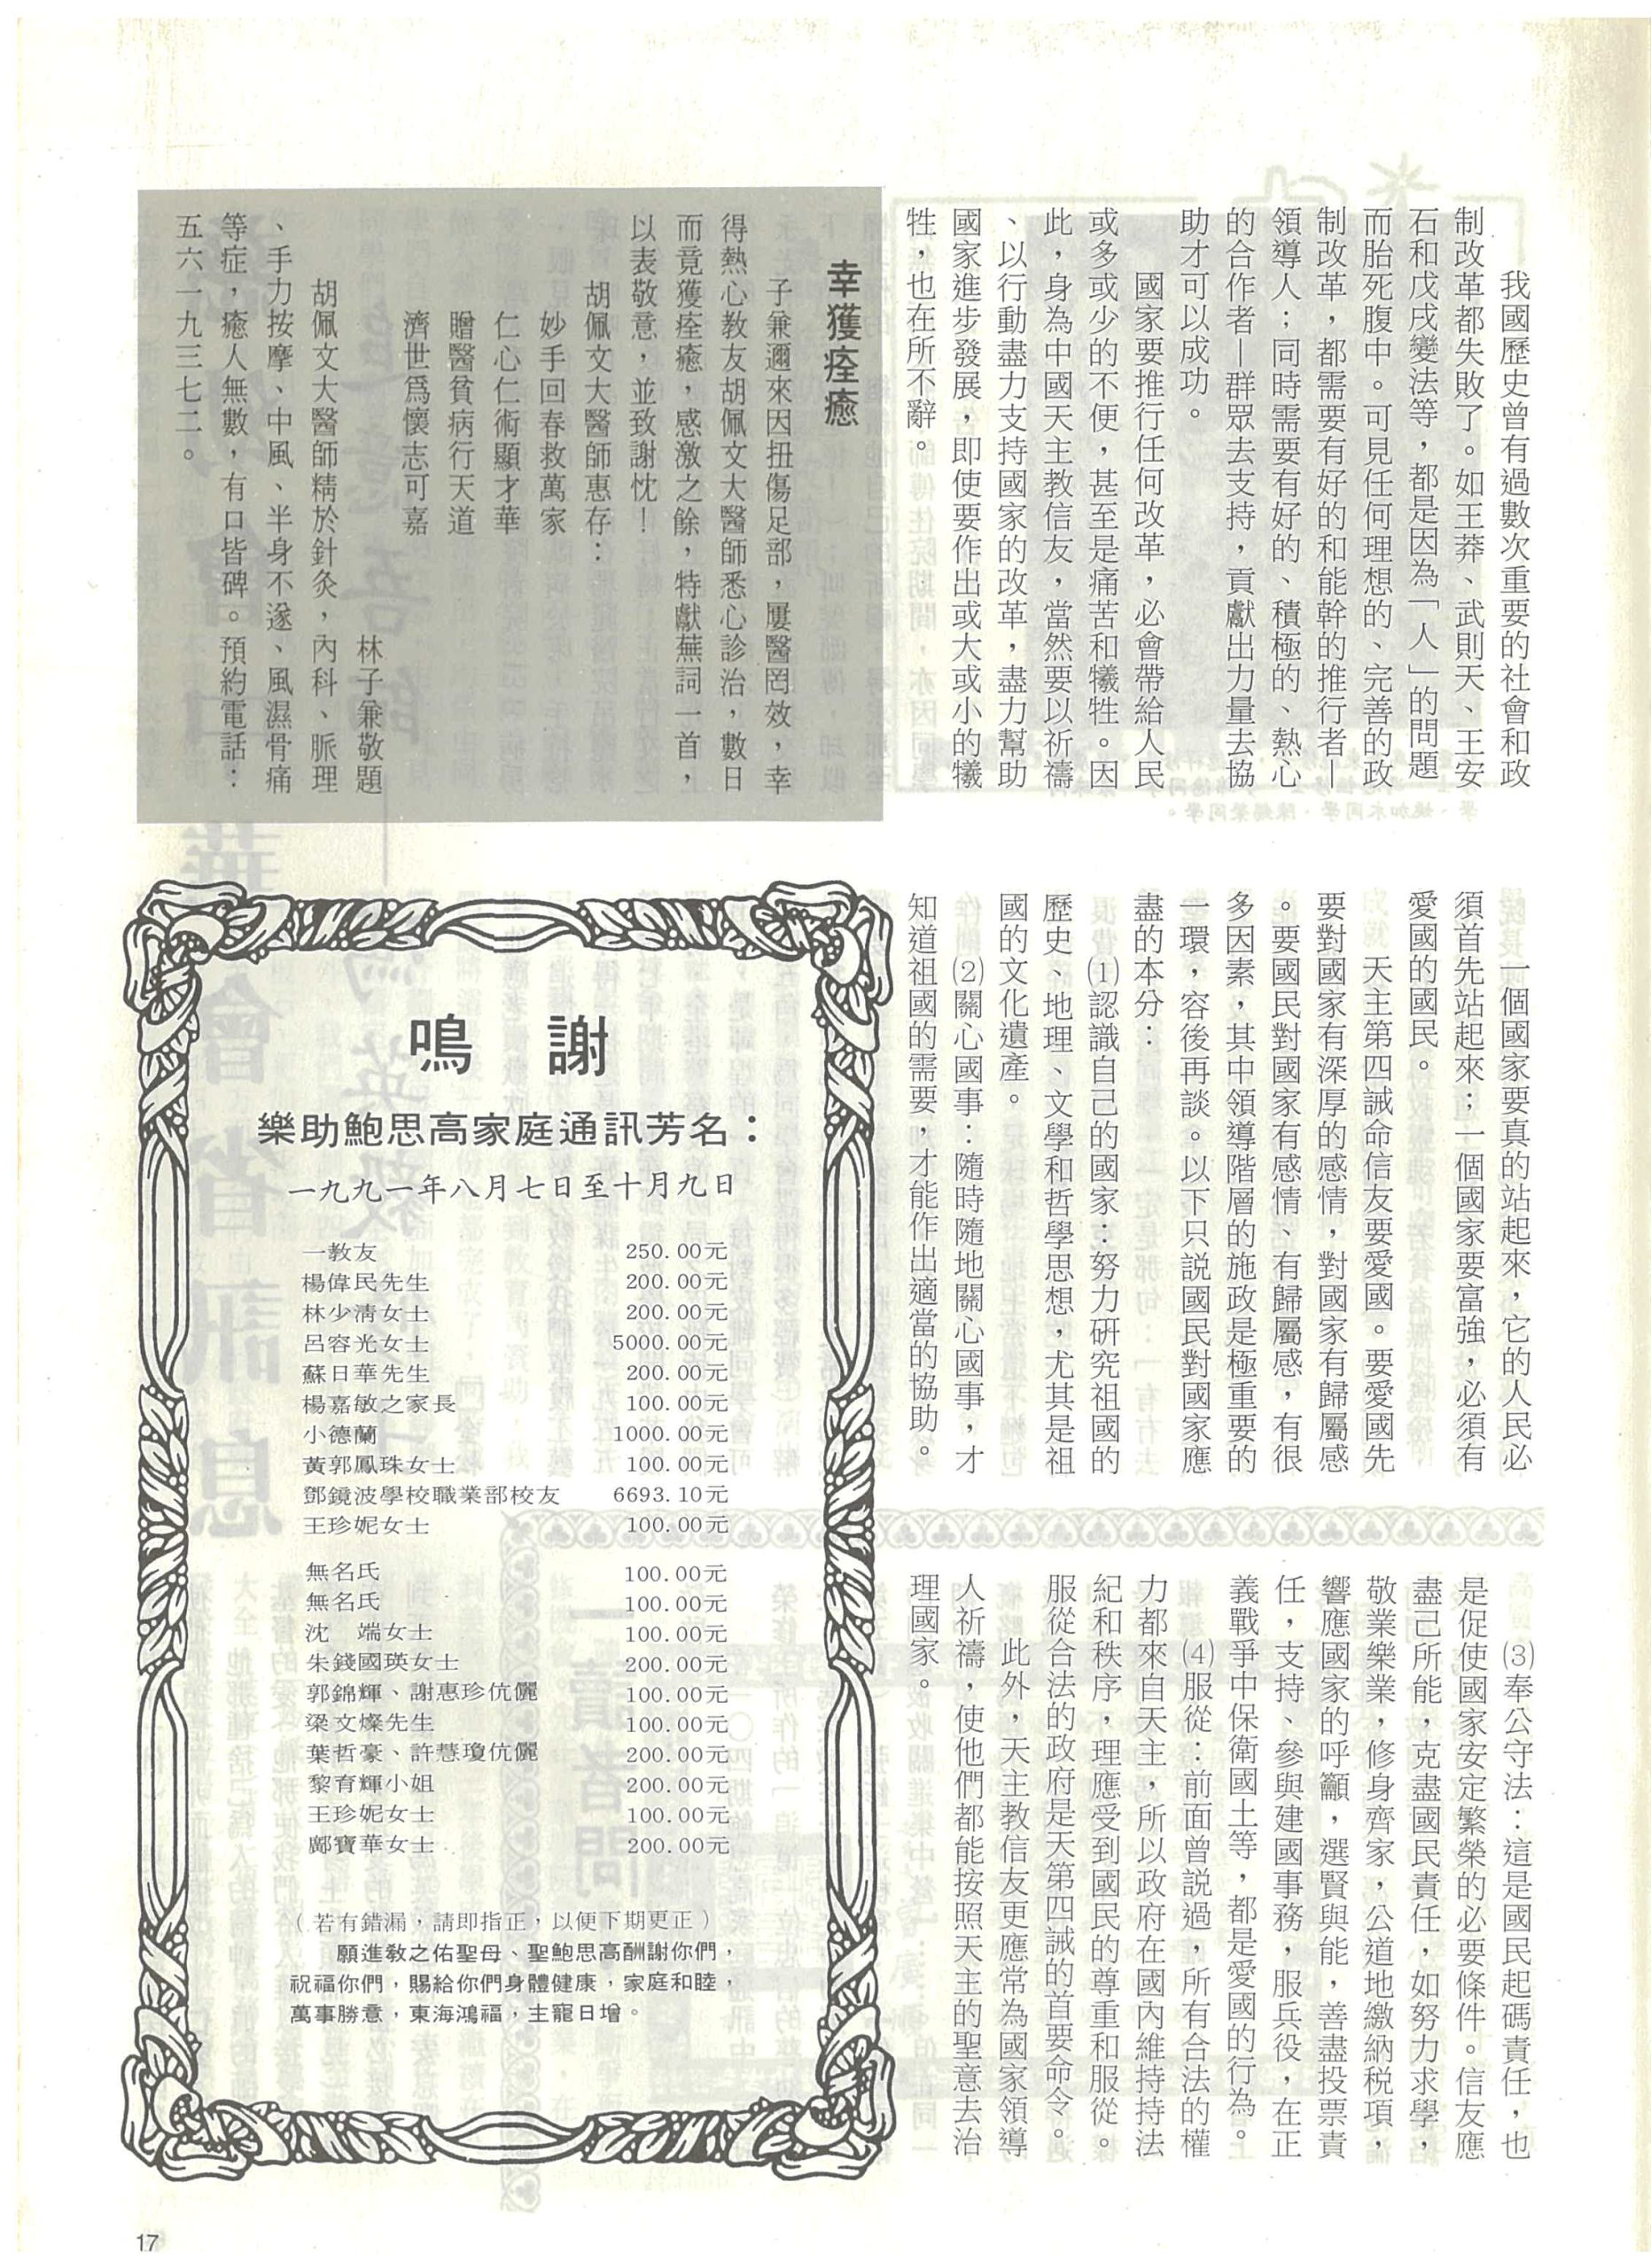 我國歷史曾有過數次重要的社會和政
制改革都失敗了。如王莽、武則天、王安
石和戊戌變法等，都是因為「人」的問題
而胎死腹中。可見任何理想的、完善的政
制改革，都需要有好的和能幹的推行者—
領導人；同時需要有好的、積極的、熱心
的合作者—群眾去支持，貢獻出力量去協
助才可以成功。
國家要推行任何改革，必會帶給人民
或多或少的不便，甚至是痛苦和犧牲。因
此，身為中國天主教信友，當然要以祈禱
、以行動盡力支持國家的改革，盡力幫助
國家進步發展，即使要作出或大或小的犧
牲，也在所不辭。
一個國家要真的站起來，它的人民必
須首先站起來；一個國家要富強，必須有
愛國的國民。
天主第四誡命信友要愛國。要愛國先
要對國家有深厚的感情，對國家有歸屬感
。要國民對國家有感情、有歸屬感，有很
多因素，其中領導階層的施政是極重要的
一環，容後再談。以下只說國民對國家應
盡的本分：
⑴認識自己的國家：努力研究祖國的
歷史、地理、文學和哲學思想，尤其是祖
國的文化遺產。
⑵關心國事：隨時隨地關心國事，才
知道祖國的需要，才能作出適當的協助。
⑶奉公守法：這是國民起碼責任，也
是促使國家安定繁榮的必要條件。信友應
盡己所能，克盡國民責任，如努力求學，
敬業樂業，修身齊家，公道地繳納稅項，
響應國家的呼籲，選賢與能，善盡投票責
任，支持、參與建國事務，服兵役，在正
義戰爭中保衛國土等，都是愛國的行為。
⑷服從：前面曾說過，所有合法的權
力都來自天主，所以政府在國內維持持法
紀和秩序，理應受到國民的尊重和服從。
服從合法的政府是天第四誡的首要命令。
此外，天主教信友更應常為國家領導
人祈禱，使他們都能按照天主的聖意去治
理國家。
幸獲痊癒
子兼邇來因扭傷足部，屢醫罔效，幸
得熱心教友胡佩文大醫師悉心診治，數日
而竟獲痊癒，感激之餘，特獻蕪詞一首，
以表敬意，並致謝忱！
胡佩文大醫師惠存：
妙手回春救萬家
仁心仁術顯才華
贈醫貧病行天道
濟世爲懷志可嘉
林子兼敬題
胡佩文大醫師精於針灸，內科、脈理
、手力按摩、中風、半身不遂、風濕骨痛
等症，癒人無數，有口皆碑。預約電話：
五六一九三七二。
鳴 謝
樂助鮑思高家庭通訊芳名：
一九九一年八月七日至十月九日
一教友 250.00元
楊偉民先生 200.00元
林少清女士 200.00元
呂容光女士 5000.00元
蘇日華先生 200.00元
楊嘉敏之家長 100.00元
小德蘭 1000.00元
黃郭鳳珠女士 100.00元
鄧鏡波學校職業部校友 6693.10元
王珍妮女士 100.00元
無名氏 100.00元
無名氏 100.00元
沈 端女士 100.00元
朱錢國瑛女士 200.00元
郭錦輝、謝惠珍伉儷 100.00元
梁文燦先生 100.00元
葉哲豪、許慧瓊伉儷 200.00元
黎育輝小姐 200.00元
王珍妮女士 100.00元
鄺寶華女士 200.00元
（若有錯漏，請即指正，以便下期更正）
願進教之佑聖母、聖鮑思高酬謝你們，
祝福你們，賜給你們身體健康，家庭和睦，
萬事勝意，東海鴻福，主寵日增。
17